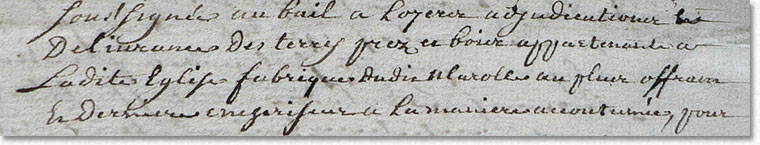 soussignée au bail a Loyer adjudication et
Delivrance Des terres prez et bois appartenants a
Ladite Eglise fabrique dudit Marolles au plus offrant
Et Dernier encherisseur a La maniere accoutumée, pour